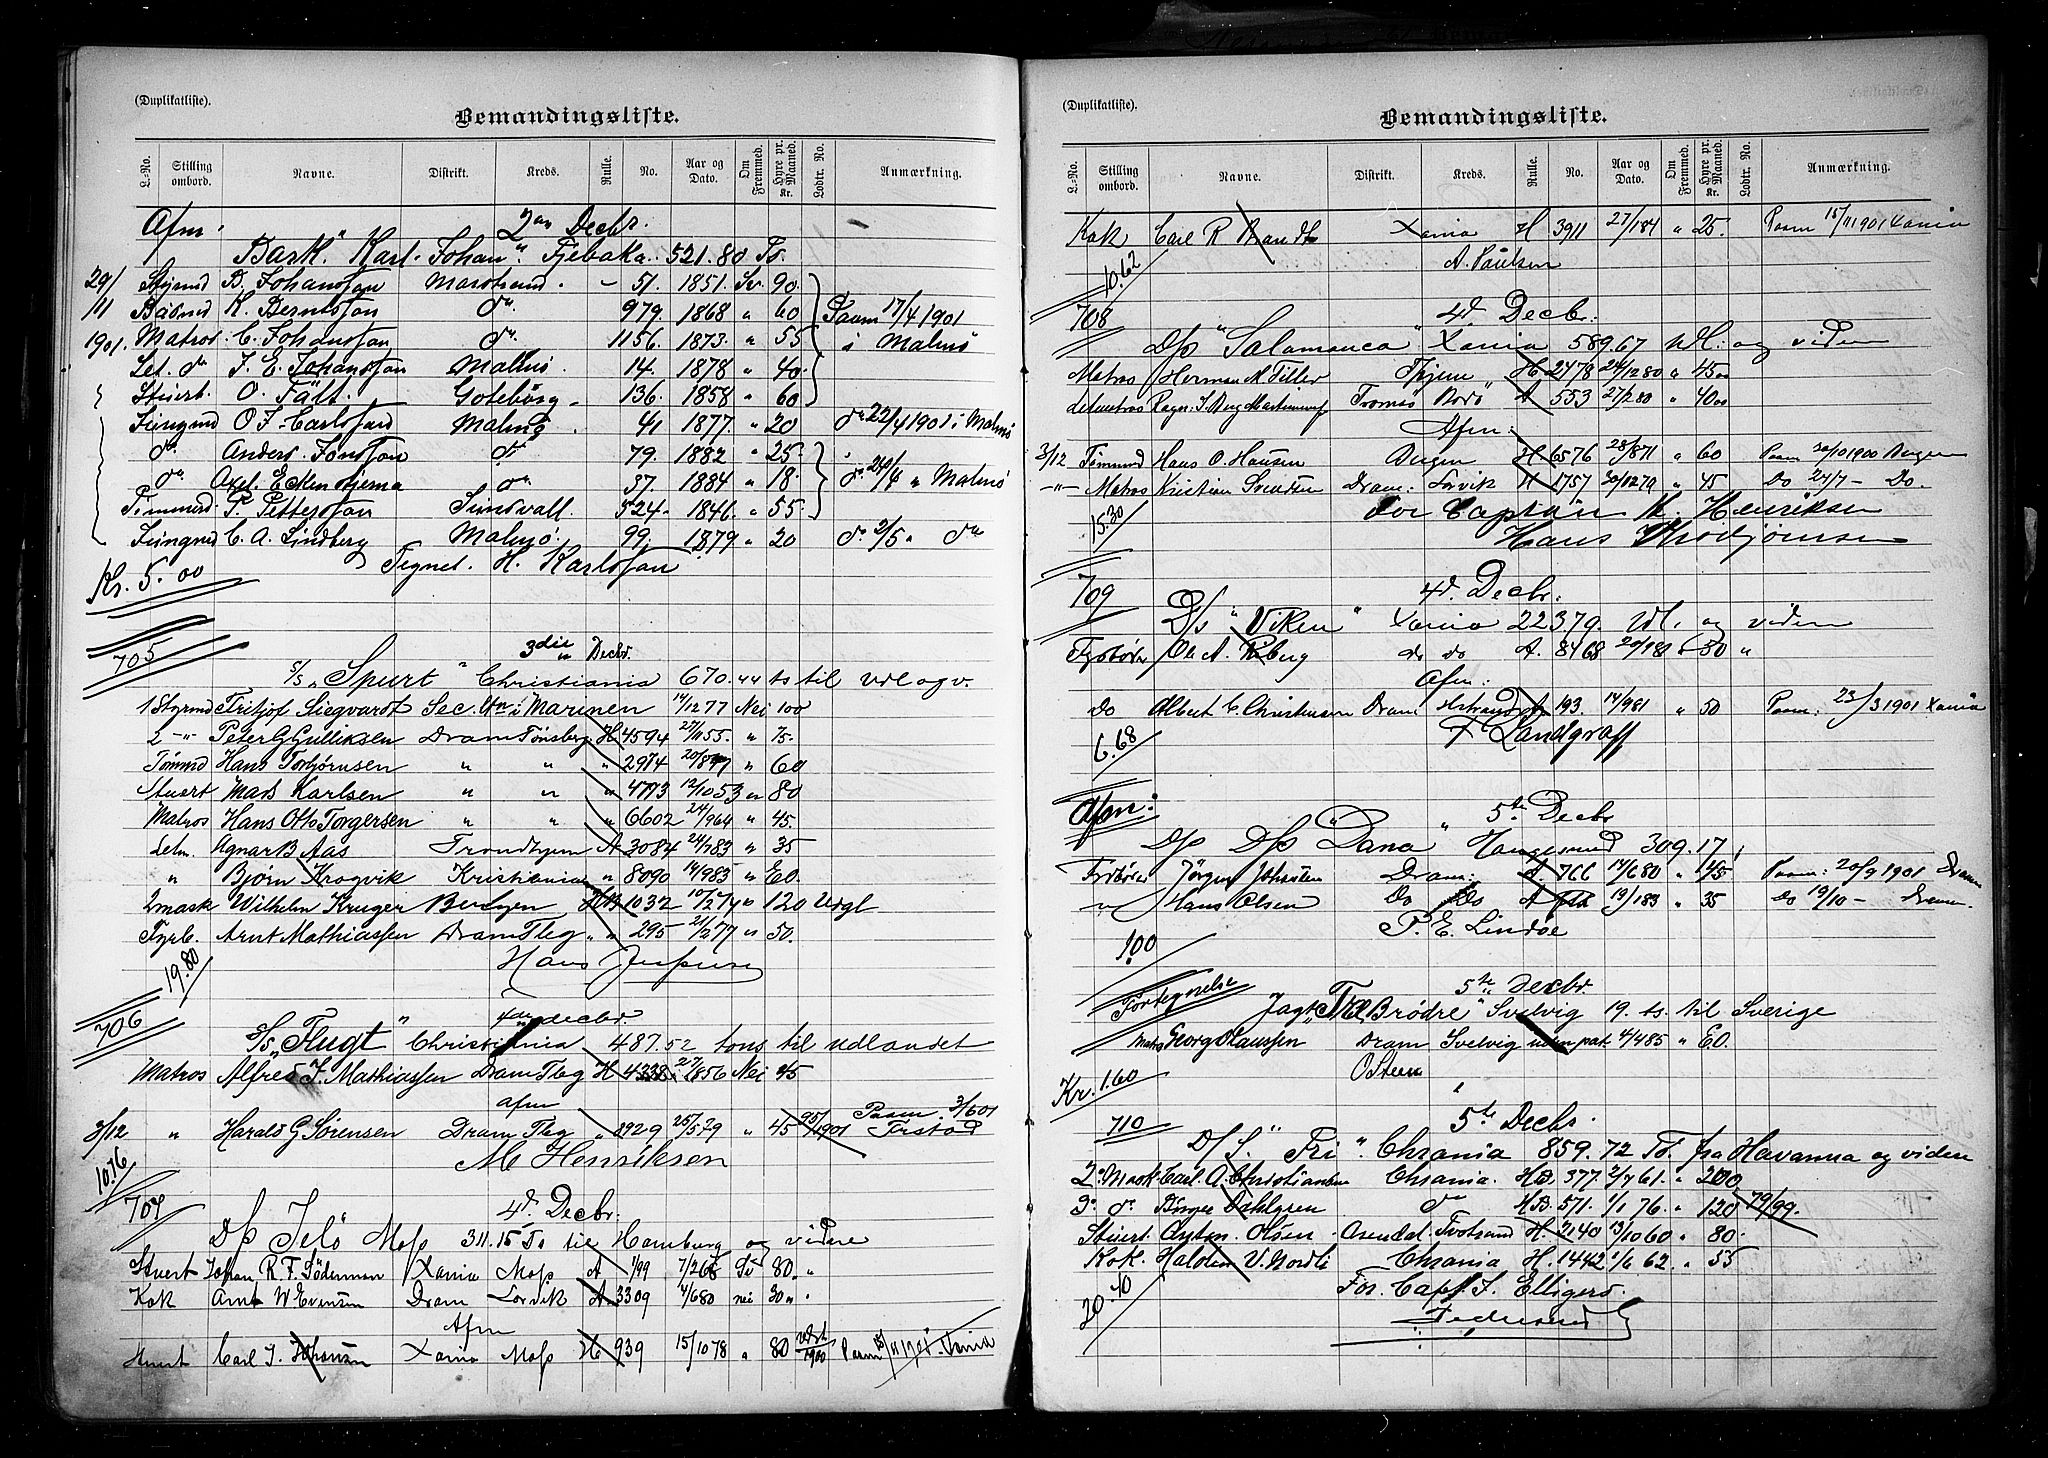 (Duplikatliste).
Bemandingsliste.
L.-No. Stilling ombord. Navne. Distrikt. Kreds. Rulle. No. Aar og Dato. Om Fremmed. Hyre pr. Maaned. Kr. Lodtr. No. Anmærkning.
Afm. 2den Decbr.
Bark "Karl Johan" Fjebaka 521.80 Ts.
29/ Styrmd B. Johansson Marstrand - 51. 1851. Sv. 90.
11 Bådsmd K. Berntsson do 979. 1868 " 60 Paam 17/4 1901
1901. Matros C. Johansson do 1156. 1873. " 55 i Malmö
Let. do J. E. Johansson Malmö. 14. 1878 " 40.
Stuert. O. Fält. Göteborg. 136. 1858 " 60
Jungmd O. F. Carlsson Malmö. 41 1877. " 20 do 22/4 1901 i Malmö
do Anders Jönsson do 79. 1882 " 25.
do Axel Eckenstjerna do 37. 1884 " 18. do 24/4 " Malmö
Timmerd. P. Pettersson Sundvall. 524. 1846. " 55.
Jungmd C. A. Lindberg Malmö. 99. 1879 " 20 do 2/5 " do
Tegnet. H. Karlsson
Kr. 5.00
705 3die Decbr.
S/S "Spurt" Christiania 670.44 ts til udl og v.
1 Styrmd Fritjof Siegvardt Sec. Ltn i Marinen 14/12 77 Nei 100
2 -"- Peter G Gulliksen Dram Tønsberg H 4594 27/11 55. " 75.
Tømmd Hans Torbjørnsen " " " 2914 20/8 47 " 60
Stuert Mads Karlsen " " " 4773 12/10 53 " 80
Matros Hans Otto Torgersen " " " 6602 24/9 64 " 45.
Letm. Agnar B Aas Trondhjem A 3084 24/7 83 " 35
" Bjørn Krogvik Kristiania " 8090 14/9 85 " 20.
2 mask Wilhelm Kruger Bergen HB 1032 10/2 74 " 120
Fyrb. Arnt Mathiassen Dram Tbg " 295 21/2 77 " 50.
Hans Jespersen
19.80
706 4de decbr.
S/S "Flugt" Christiania 487.52 tons til udlandet
Matros Alfred J. Mathiassen Dram Tbg H 4338 27/8 56 Nei 45
afm
3/12 " Harald G Sørensen Dram Tbg " 3929 25/5 79 " 45 95/1901 Paam. 3/6 01
M Henriksen
10.16
707 4d. Decbr.
D/S Jelö Moss 311.15 Ts til Hamburg og videre
Stuert Johan R. F. Söderman Xania Moss A 1/99 7/2 65 Sv 80. "
Kok Arnt W Evensen Dram Larvik A 3309 4/6 80 nei 30 "
Afm
Stuert Carl J. Johansen Xania Moss H 939 15/10 78 " 80 Paam 15/11 1901 Xania
(Duplikatliste).
Bemandingsliste.
L.-No. Stilling ombord. Navne. Distrikt. Kreds. Rulle. No. Aar og Dato. Om Fremmed. Hyre pr. Maaned. Kr. Lodtr. No. Anmærkning.
Kok Carl R Brandt Xania H 3911 27/1 84 " 25. Paam 15/11 1901 Xania
A. Paulsen
10.62
708 4d. Decbr.
D/S "Salamanca" Xania 589.67 udl: og viden
Matros Herman M Tiller Thjem H 2478 24/12 80 " 45 00
Letmatros Ragn. J. Berg Martinius Tromsö Bodö A 553 27/2 80 " 40 00
Afm:
3/12 Tømmd Hans O. Hansen Bergen H 6576 28/8 71 " 60 Paam 20/10 1900 Bergen
-"- Matros Kristian Svendsen Dram: Larvik H 1757 30/12 79 " 45 Do 24/7 - Do.
For Captain M. Henriksen
Hans Thorbjörnsen
15.30
709 4d. Decbr.
D/S "Viken" Xania 223.79. Udl. og viden
Fyrbøder Ole A. Riberg do do A. 8468 20/1 80 " 80 "
Afm:
Do Albert C. Christiansen Dram Holmstrand A 193. 14/9 81 " 50 Paam: 23/3 1901 Xania
F Landgraff
6.68
Afm: 5te Decbr
D/S D/S "Dana" Haugesund 309.17.
Fyrbøder Jørgen Johnsen Dram: A 766 14/6 80 " 45 Paam: 20/9 1901 Dram
-"- Hans Olsen Do Do A 19/1 83 " 35 Do 19/10 - Dram.
P. E. Lindöe
1.00
Fortegnelse 5te decbr.
Jagt "Tre Brødre" Svelvig 19. ts. til Sverige
Matros Georg Olaussen Dram Svelvig uden pat. 4/4 85 " 20.
O Steen
Kr. 1.60
710 5te Decbr.
D/S. "Fri". Chrania 859.72 Ts. fra Havanna og viden
2. Mask. Carl A. Christiansen Chrania. HB. 377. 2/7 61. " 200.
3. do Birger Dahlgren do HB. 571. 1/1 76. " 120 79/99.
Stuert Anton Olsen Arendal. Tvdstrand H. 2140 13/10 60 " 80.
Kok. Halden V. Nordli Chrania H. 1442 1/6 62. " 55
For. Capt. J. Elligers.
Pedersen
20.40